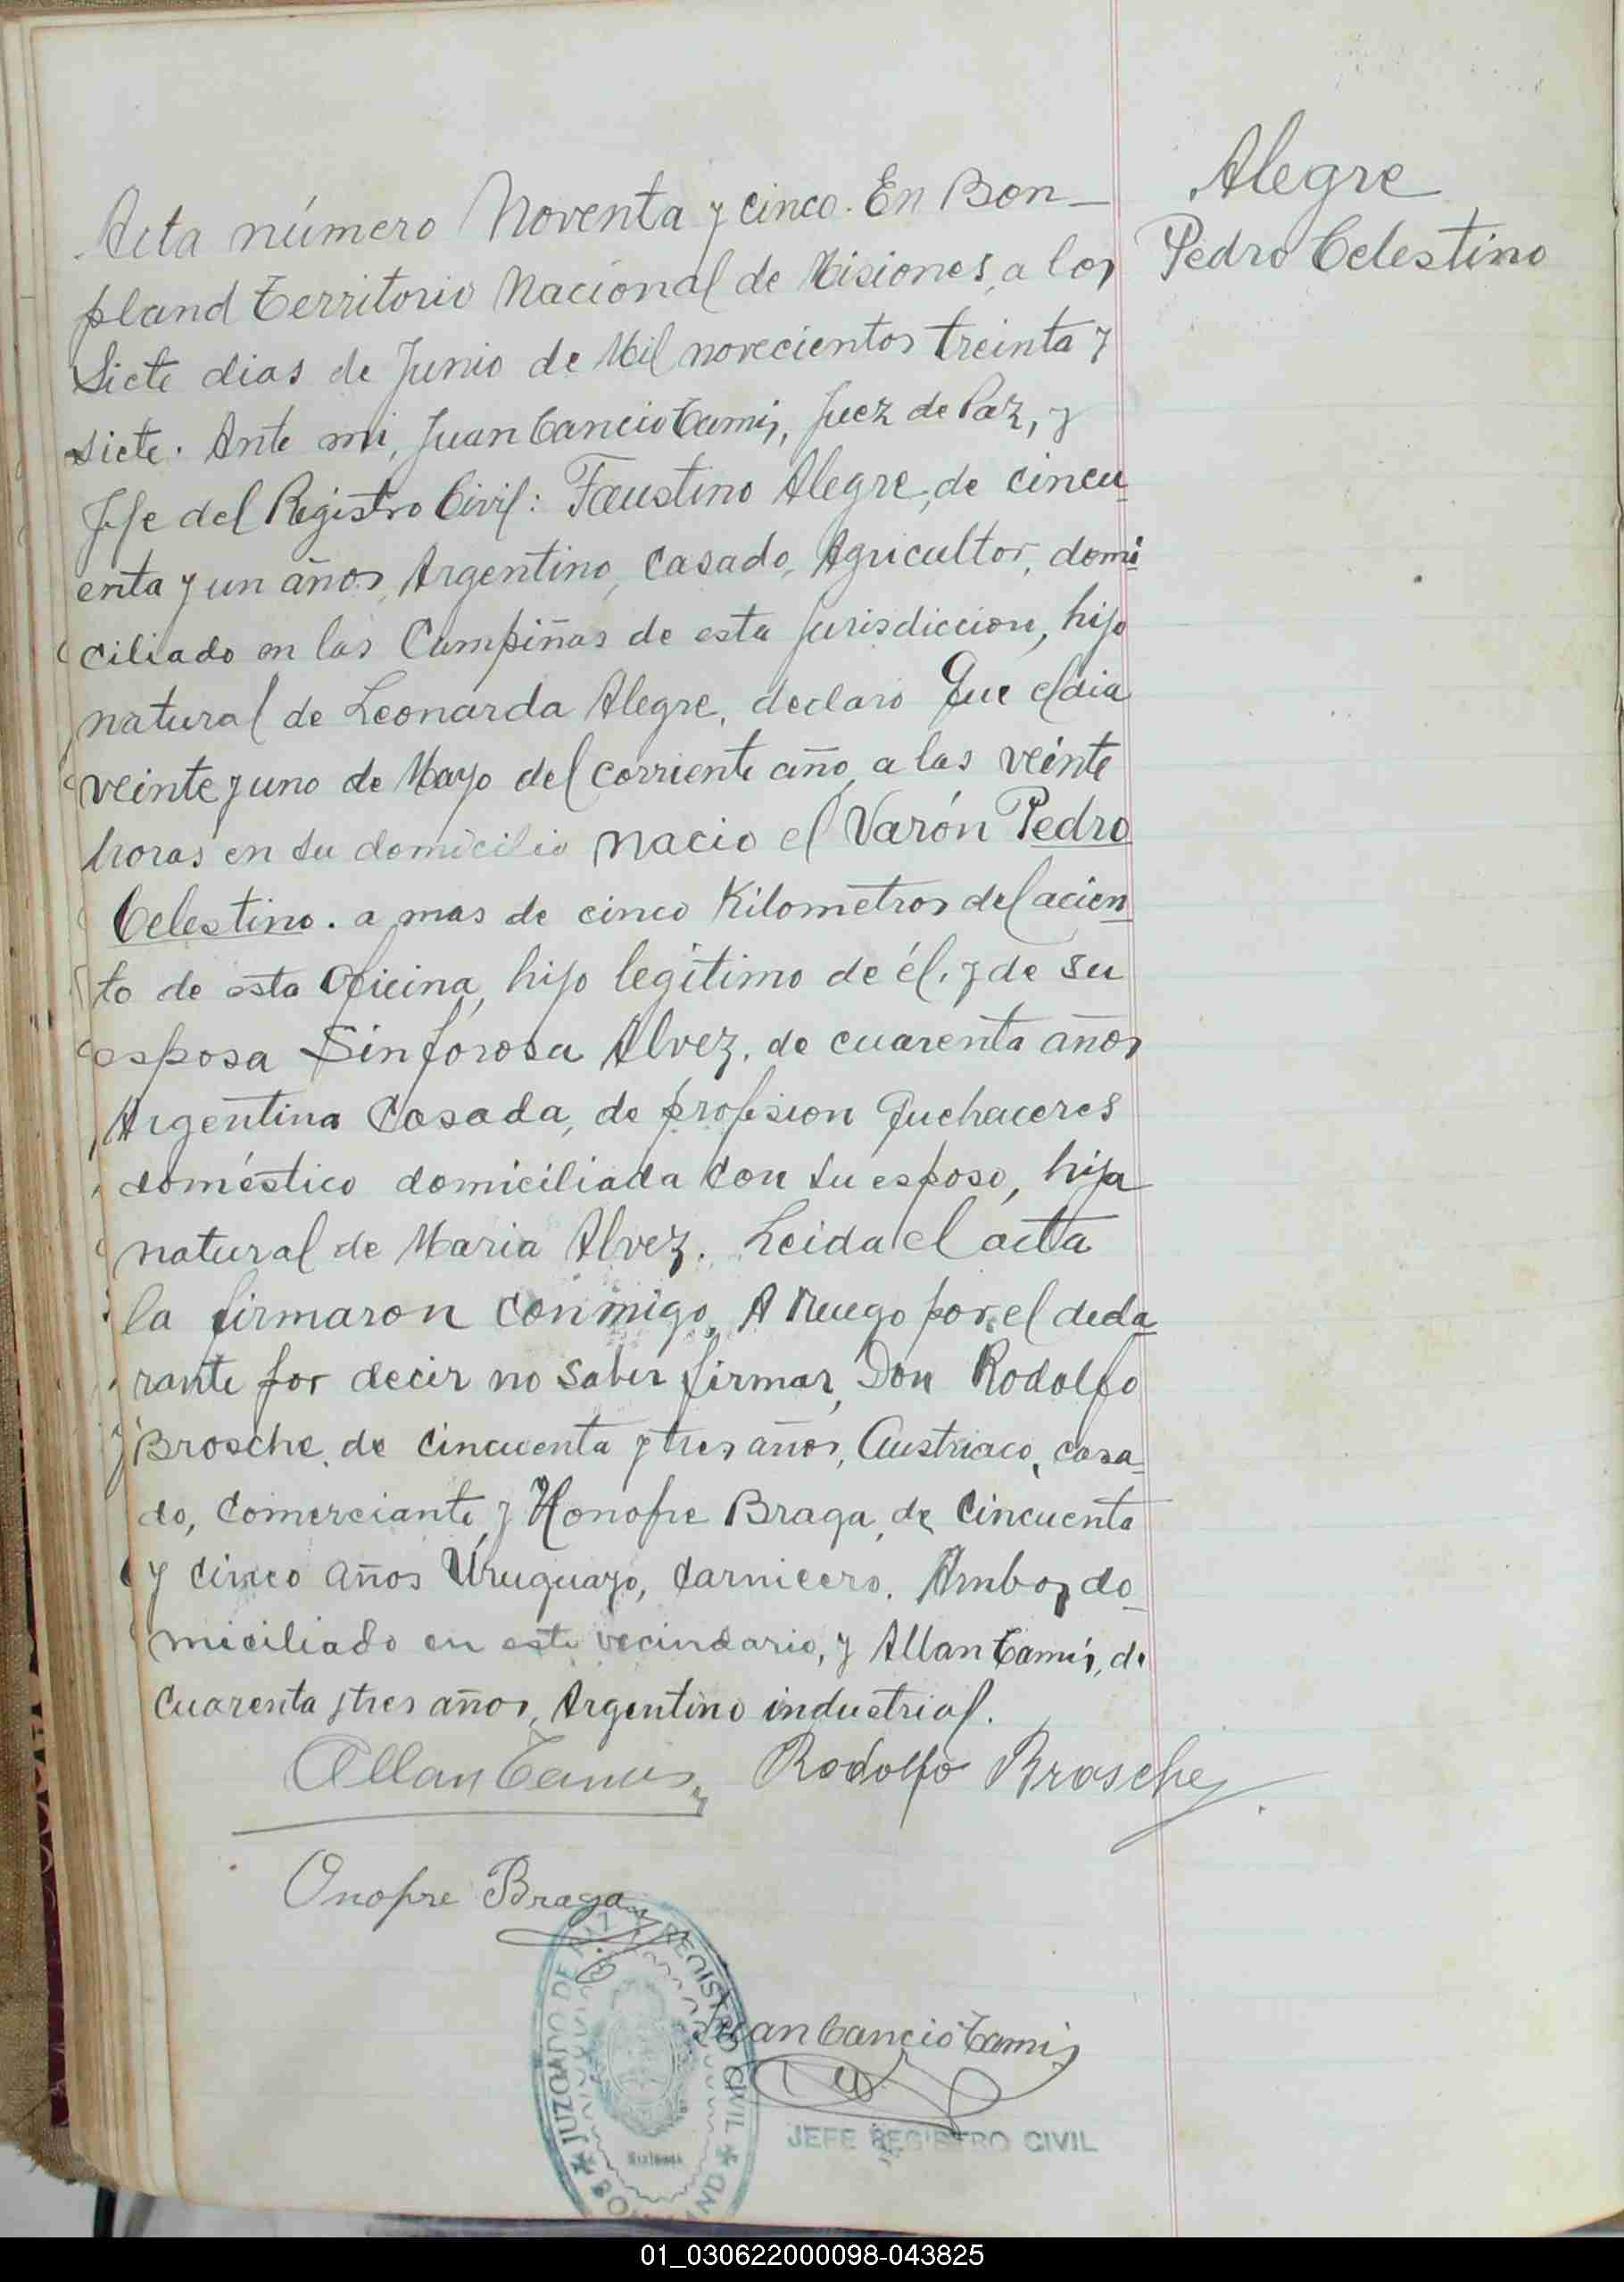 Alegre
Pedro Celestino
Acta número Noventa y cinco. En Bon-
pland Territorio Nacional de Misiones, a los
Siete dias de Junio de Mil novecientos treinta y
siete. Ante mi, Juan Cancio Camis, Juez de Paz, y
Jefe del Registro Civil: Faustino Alegre, de cincu
enta y un años, Argentino, Casado, Agricultor, domi
ciliado en las Campiñas de esta jurisdiccion, hijo
natural de Leonarda Alegre, declaro Que el dia
veinte y uno de Mayo del corriente año, a las veinte
horas en su domicilio nacio el Varón Pedro
Celestino. a mas de cinco Kilometros del acien
to de esta Oficina, hijo legítimo de él, y de su
esposa Sinforosa Alvez, de cuarenta años
Argentina Casada, de profesion Quehaceres
doméstico domiciliada con su esposo, hija
natural de Maria Alvez. Leida el acta
la firmaron conmigo, A Ruego por el decla
rante por decir no saber firmar, Don Rodolfo
Brosche, de cincuenta y tres años, Austriaco, casa
do, Comerciante, y Honofre Braga, de Cincuenta
y cinco años Uruguayo, Carnicero. Ambos do
miciliado en este vecindario, y Allan Camis, de
Cuarenta y tres años, Argentino industrial.
Allan Camis Rodolfo Brosche
Onofre Braga
Juan Cancio Camis
JEFE REGISTRO CIVIL
JUZGADO DE PAZ Y REGISTRO CIVIL
BONPLAND
Misiones
01_030622000098-043825